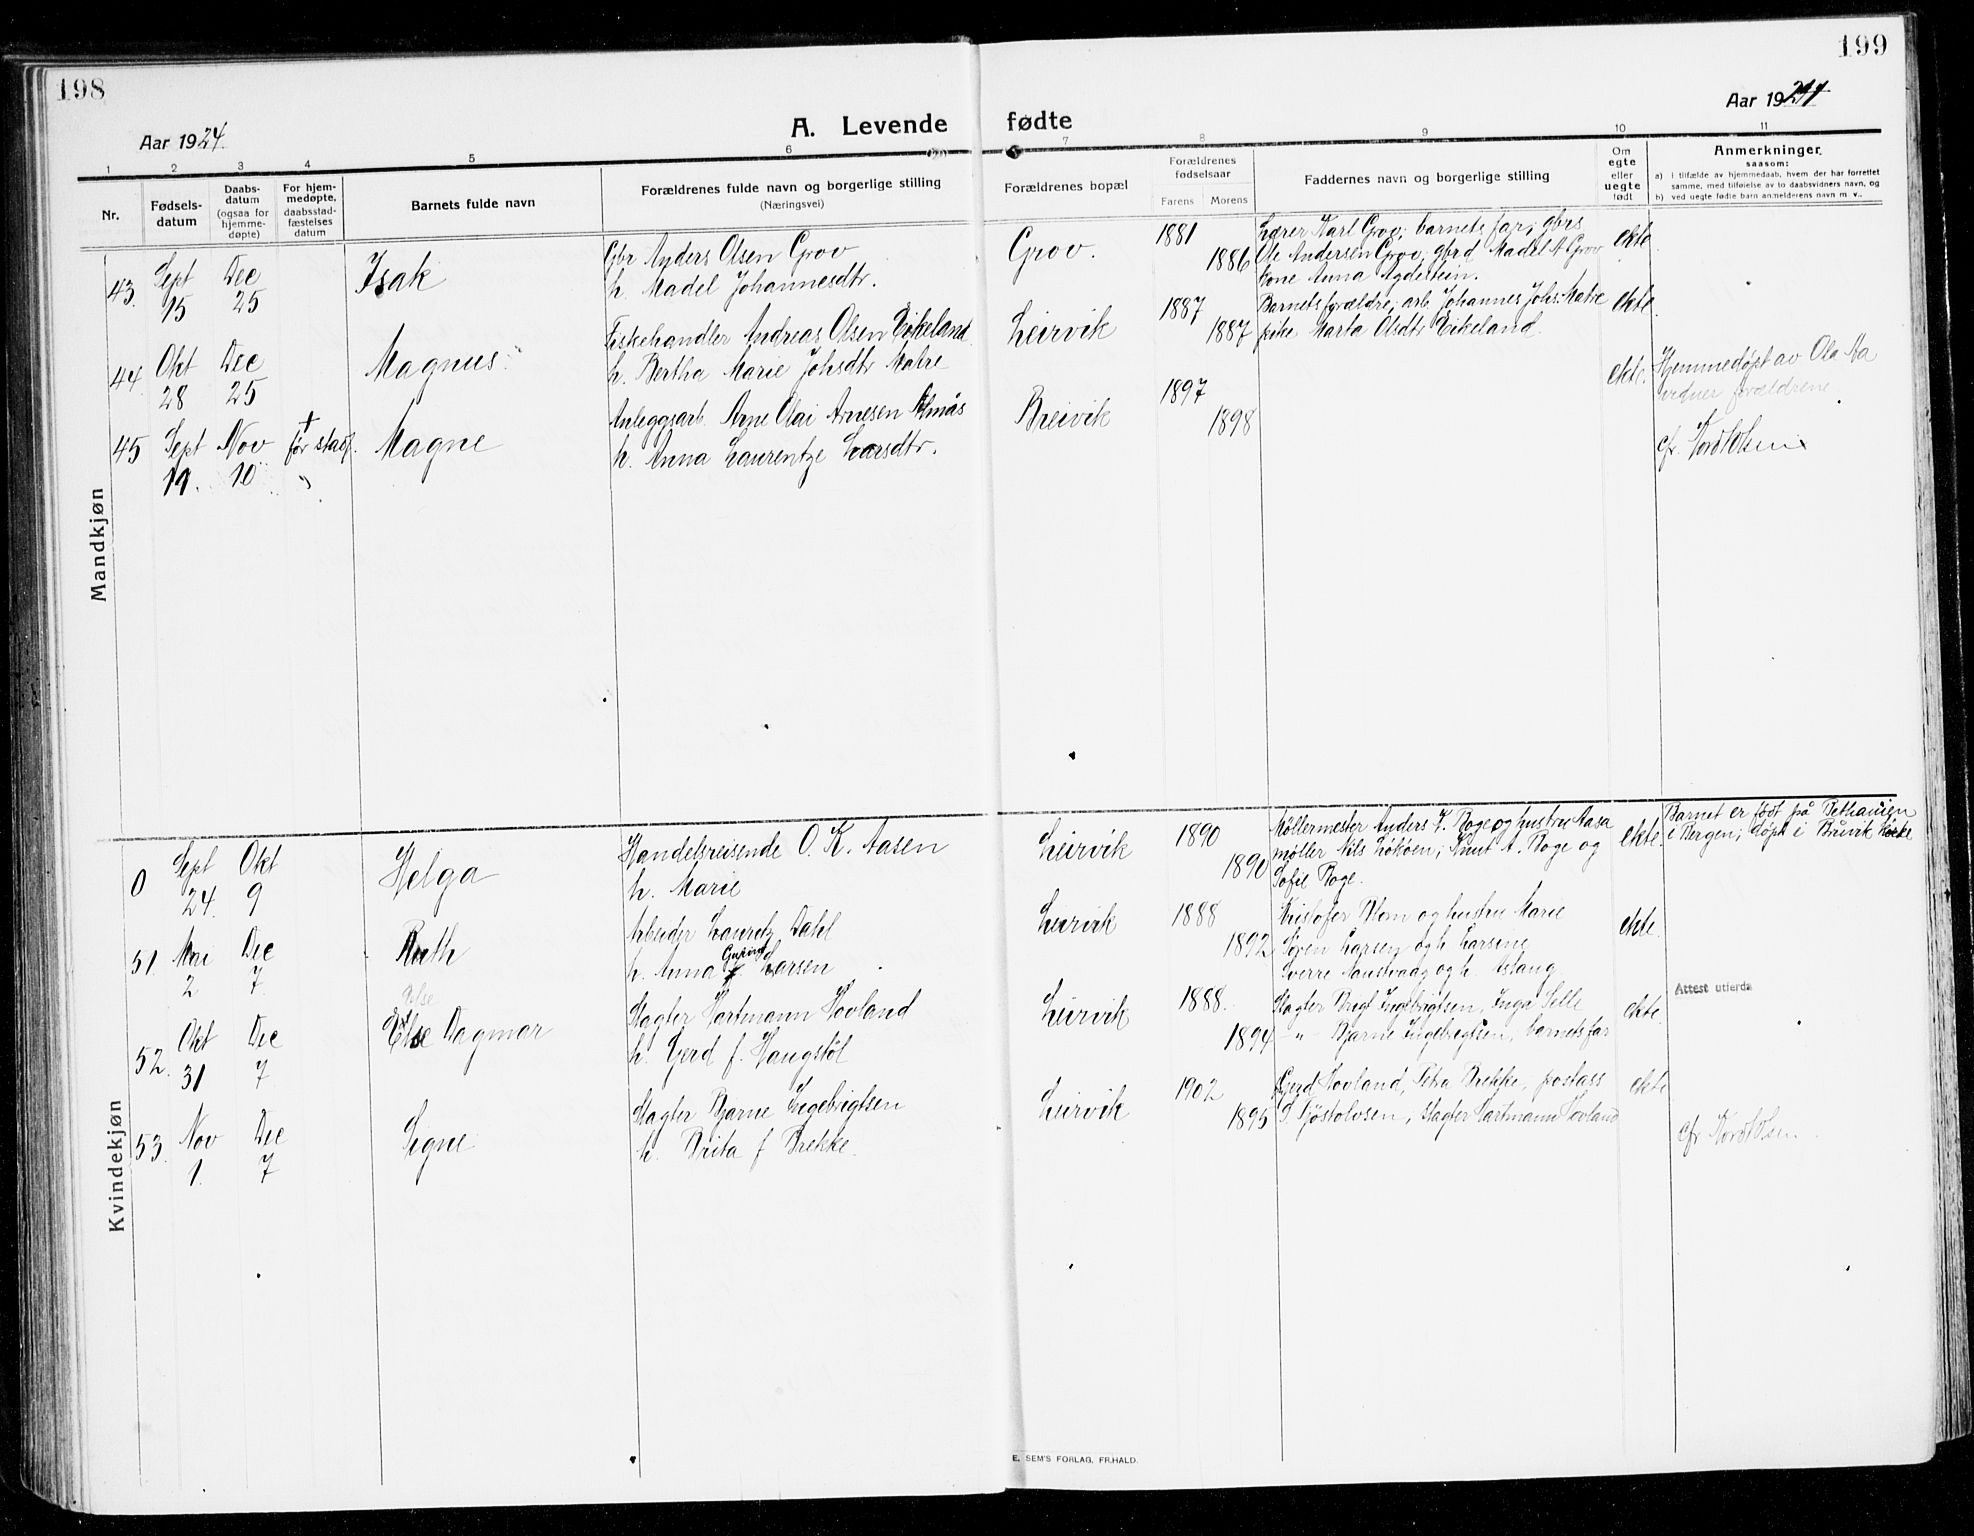 198
199
Aar 1924.
A. Levende fødte
Aar 1924
1 2 3 4 5 6 7 8 9 10 11
Nr.
Fødsels-
datum
Daabs-
datum
(ogsaa for
hjemme-
døpte)
For hjem-
medøpte,
daabsstad-
fæstelses
datum
Barnets fulde navn
Forældrenes fulde navn og borgerlige stilling
(Næringsvei)
Forældrenes bopæl
Forældrenes
fødselsaar
Farens Morens
Faddernes navn og borgerlige stilling
Om
egte
eller
uegte
født
Anmerkninger,
saasom:
a) i tilfælde av hjemmedaab, hvem der har forrettet
samme, med tilføielse av to daabsvidners navn, og
b) ved uegte fødte barn anmelderens navn m. v..
Mandkjøn
43. Sept 15 Dec 25
Isak
Gbr Anders Olsen Grov
h. Madel Johannesdtr.
Grov.
1881
1886
Lærer Karl Grov; barnets far; gbrs
Ole Andersen Grov; gbrd Madel A Grov
kone Anna
ekte.
44. Okt 28 Dec 25
Magnus.
Fiskehandler Andreas Olsen Eikeland
h. Bertha Marie Johsdtr Matre
Leirvik
1887
1887
Barnets forældre; arb. Johannes Johs. Matre
pike Marta Olsdtr Eikeland.
ekte.
45 Sept 19. Nov 10 † før stadf.
Magne
Anleggsarb. Arne Olai Arnesen Almås
h. Anna Laurentze Larsdtr.
Breivik
1897
1898
ekte.
Hjemmedøpt av Ola Aa
vidner forældrene.
cfr. Nordt Olsen
Kvindekjøn
0 Sept 24. Okt 9
Helga
Handelsreisende O. K. Aasen
h. Marie
Leirvik
1890
1890
Møllermester Anders K. Roge og hustru Aasa
møller Nils Lökøen; Knut A. Roge og
Sofie Roge.
ekte.
Barnet er født på Bethanien
i Bergen; døpt i Bruvik kirke
51. Mai 2 Dec 7.
Ruth
Arbeider Lauretz Dahl
h. Anna Gurine f Larsen
Leirvik
1888
1892
Kristofer Blom og hustru Marie
Søren Larsen og h. Larsine
Sverre Naustvaag og h. Aslaug
ekte.
52. Okt 31 Dec 7
Else
Else Dagmar
Slagter Hartmann Hovland
h. Gerd f. Haugstöl
Leirvik
1888.
1894
Slagter Bregt Ingebrigtsen, Inga Selle
-"- Bjarne Ingebregtsen, barnets far
ekte.
Attest utferda
53. Nov 1. Dec 7
Signe
Slagter Bjarne Ingebrigtsen
h. Brita f Brekke.
Leirvik
1902
1895
Gerd Hovland, Petra Brekke, postass
S. Sjöstolvsen, slagter Hartmann Hovland
ekte
cfr Nordt Olsen.
E. SEM'S FORLAG, FR.HALD.